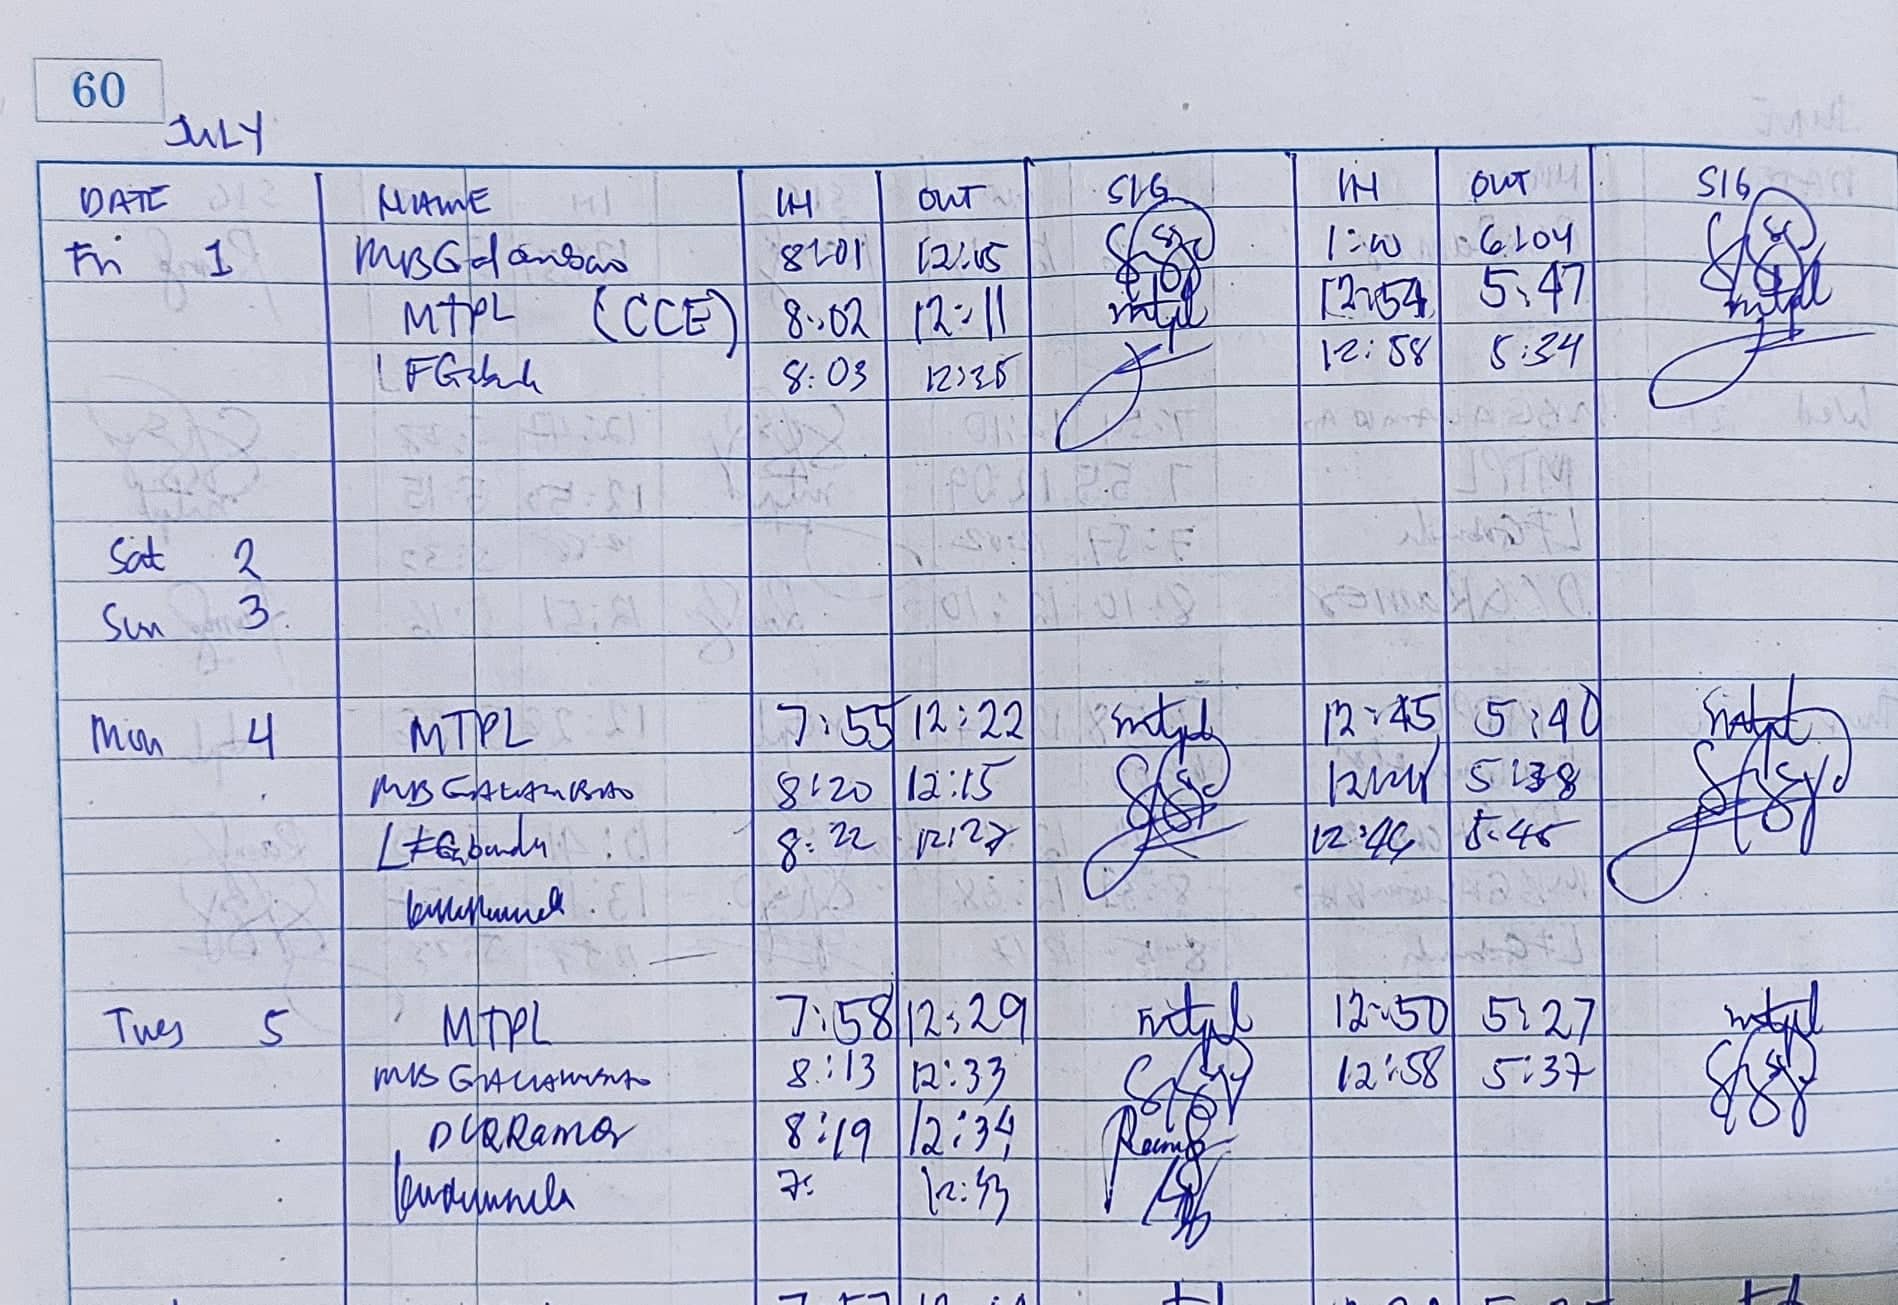 60
JULY
DATE NAME IN OUT SIG IN OUT SIG
Fri 1 MBGalambao 8:01 12:15 1:00 6:04
MTPL (CCE) 8:02 12:11 mtpl 12:54 5:47 mtpl
LFGabunda 8:03 12:25 12:58 5:34
Sat 2
Sun 3
Mon 4 MTPL 7:55 12:22 mtpl 12:45 5:40 mtpl
MB GALAMBAO 8:20 12:15 5:38
LFGabunda 8:22 12:27 12:49 5:45
Tues 5 MTPL 7:58 12:29 mtpl 12:50 5:27 mtpl
MB GALAMBAO 8:13 12:33 12:58 5:37
DCQRamos 8:19 12:34 Ramos
7: 12:33